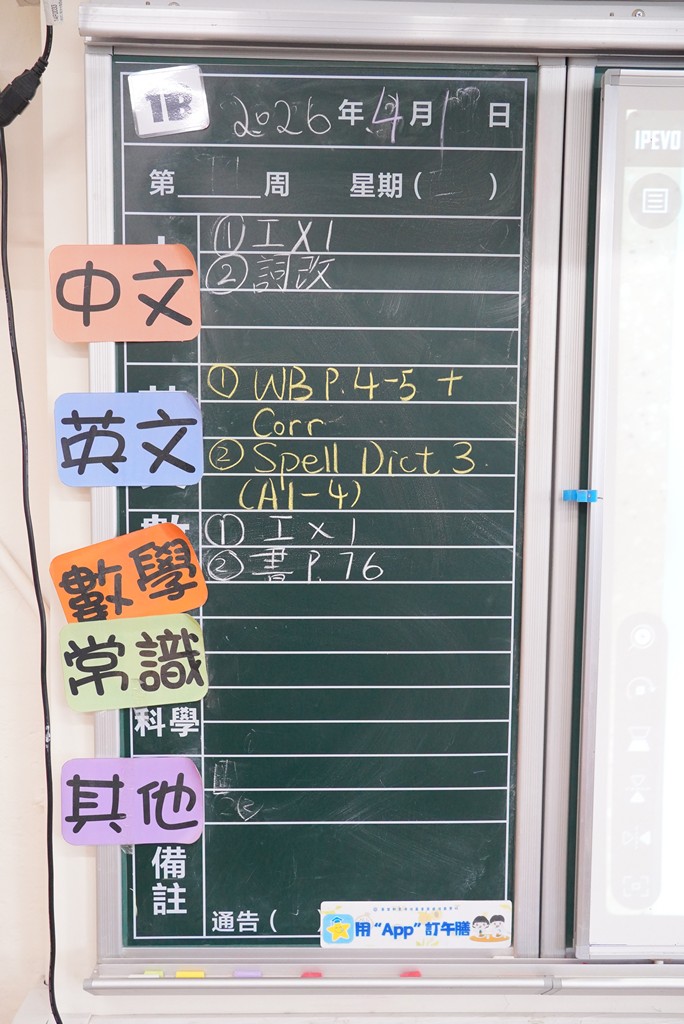 1B
2026年4月1日
第____周 星期( )
中文
① 工 X 1
② 詞改
英文
① WB P.4-5 +
Corr
② Spell Dict 3
(A1-4)
數學
① 工 x 1
② 書 P.76
常識
科學
其他
備註
通告 (
用 "App" 訂午膳
IPEVO